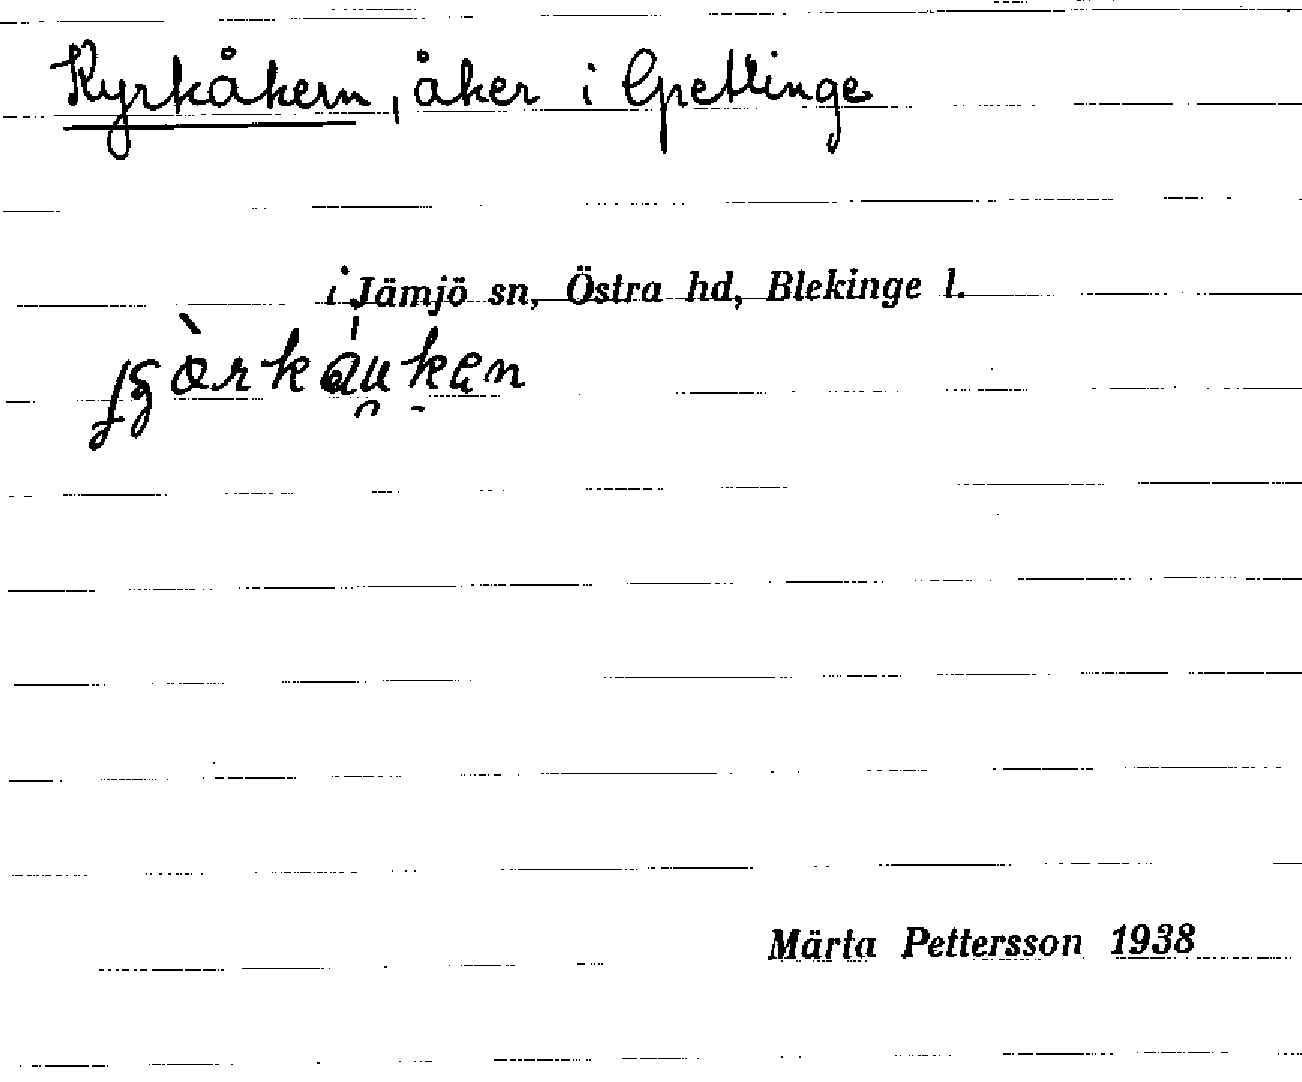 Kyrkåkern, åker i Gretlinge
i Jämjö sn, Östra hd, Blekinge l.
Märta Pettersson 1938